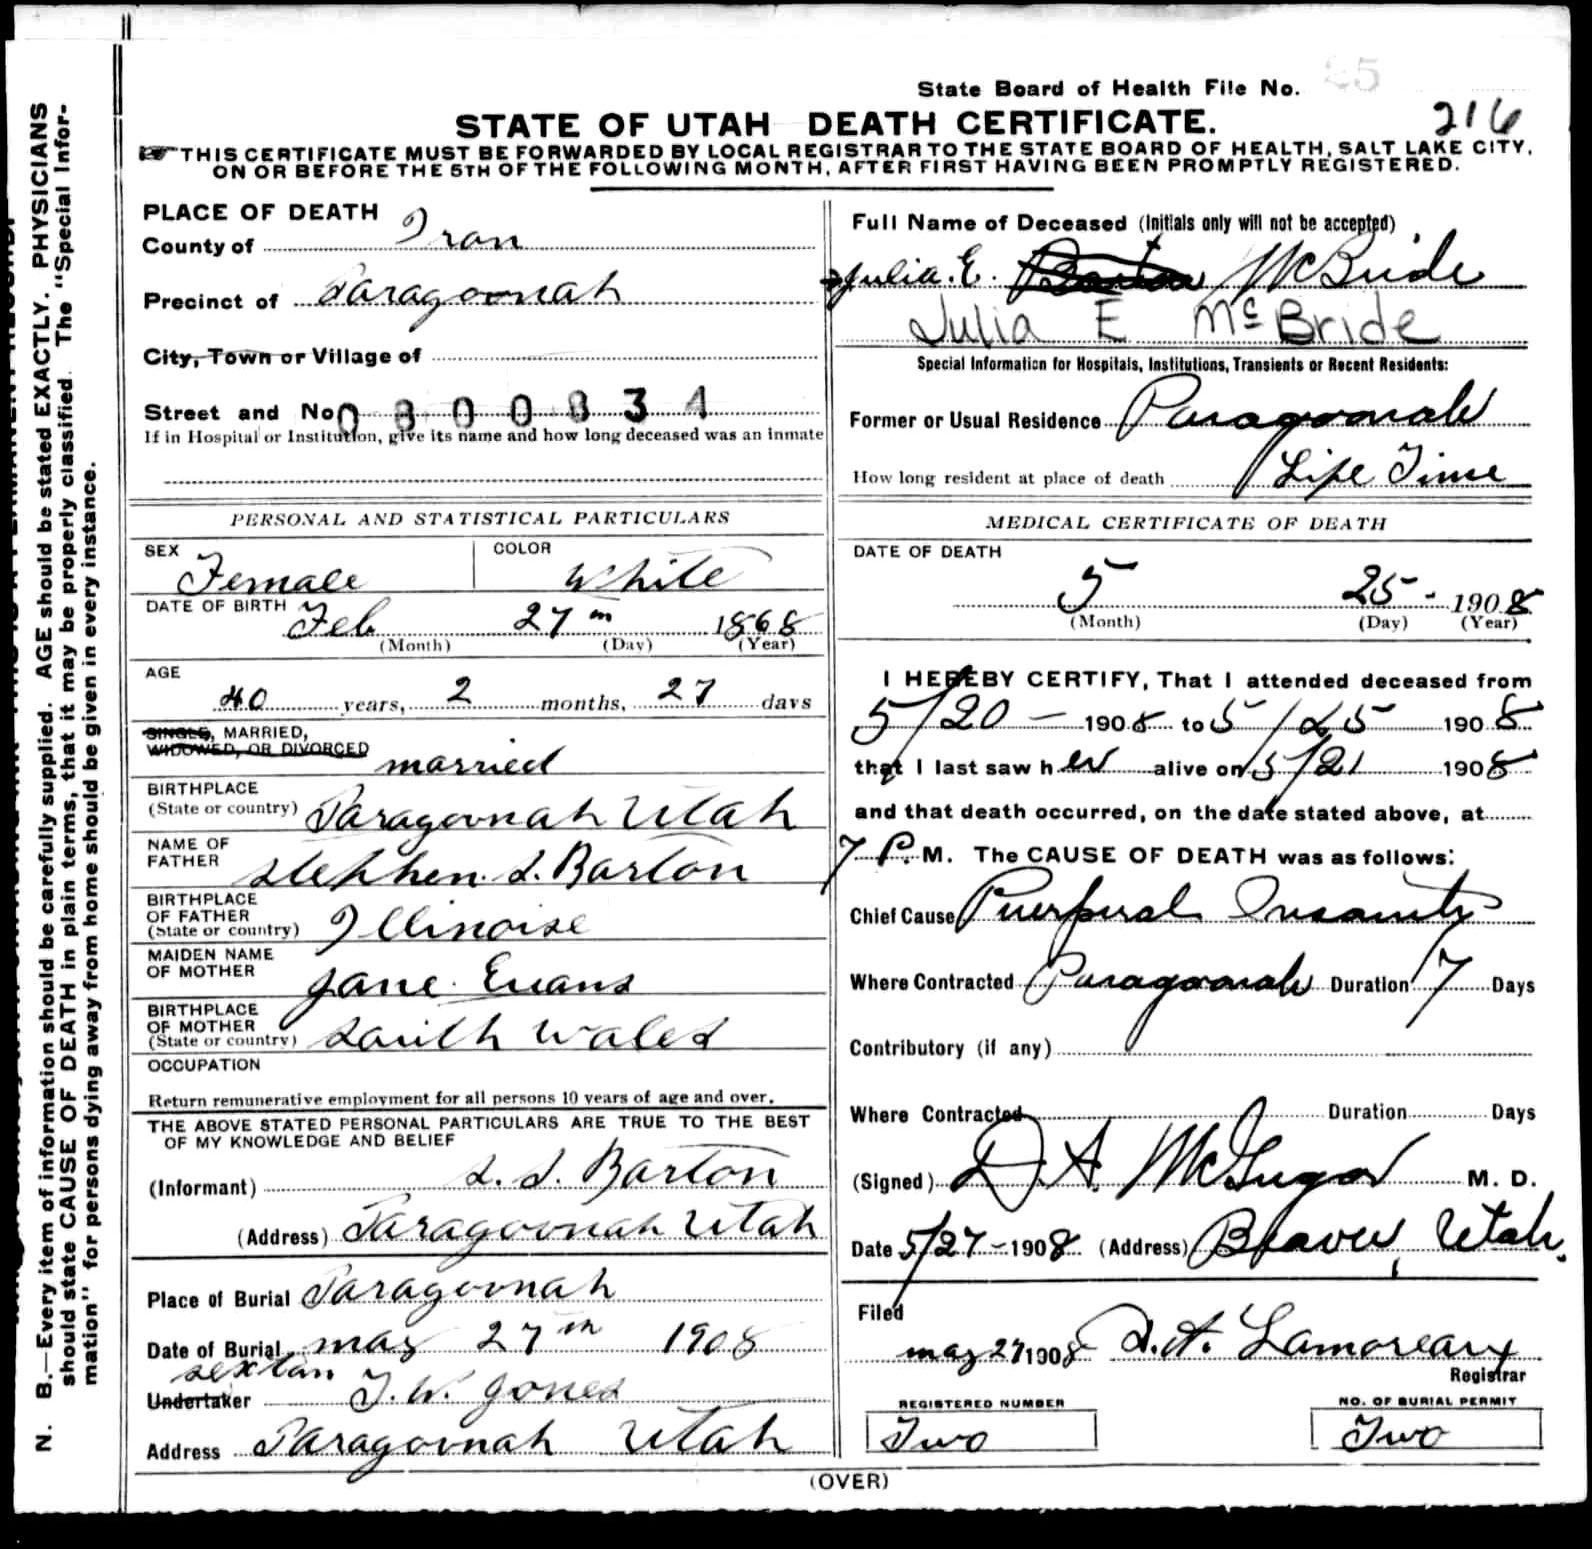 State Board of Health File No. 25
216
STATE OF UTAH DEATH CERTIFICATE.
THIS CERTIFICATE MUST BE FORWARDED BY LOCAL REGISTRAR TO THE STATE BOARD OF HEALTH, SALT LAKE CITY,
ON OR BEFORE THE 5TH OF THE FOLLOWING MONTH, AFTER FIRST HAVING BEEN PROMPTLY REGISTERED.
N. B.—Every item of information should be carefully supplied. AGE should be stated EXACTLY. PHYSICIANS
should state CAUSE OF DEATH in plain terms, that it may be properly classified. The "Special Infor-
mation" for persons dying away from home should be given in every instance.
PLACE OF DEATH
County of Iron
Precinct of Paragoonah
City, Town or Village of
Street and No. 0800834
If in Hospital or Institution, give its name and how long deceased was an inmate
PERSONAL AND STATISTICAL PARTICULARS
SEX Female COLOR White
DATE OF BIRTH Feb 27th 1868
(Month) (Day) (Year)
AGE
40 years, 2 months, 27 days
SINGLE, MARRIED,
WIDOWED, OR DIVORCED married
BIRTHPLACE
(State or country) Paragoonah Utah
NAME OF
FATHER Stephen S. Barton
BIRTHPLACE
OF FATHER
(State or country) Illinoise
MAIDEN NAME
OF MOTHER Jane Evans
BIRTHPLACE
OF MOTHER
(State or country) South Wales
OCCUPATION
Return remunerative employment for all persons 10 years of age and over.
THE ABOVE STATED PERSONAL PARTICULARS ARE TRUE TO THE BEST
OF MY KNOWLEDGE AND BELIEF
(Informant) S. S. Barton
(Address) Paragoonah Utah
Place of Burial Paragoonah
Date of Burial may 27th 1908
sextan
Undertaker T. W. Jones
Address Paragoonah Utah
Full Name of Deceased (Initials only will not be accepted)
Julia. E. Barton McBride
Julia E McBride
Special Information for Hospitals, Institutions, Transients or Recent Residents:
Former or Usual Residence Paragoonah
How long resident at place of death Life Time
MEDICAL CERTIFICATE OF DEATH
DATE OF DEATH
5 25 - 1908
(Month) (Day) (Year)
I HEREBY CERTIFY, That I attended deceased from
5/20 - 1908 to 5/25 1908
that I last saw her alive on 5/21 1908
and that death occurred, on the date stated above, at
7 P. M. The CAUSE OF DEATH was as follows:
Chief Cause Puerperal Insanity
Where Contracted Paragoonah Duration 7 Days
Contributory (if any)
Where Contracted Duration Days
(Signed) D. A. McGregor M. D.
Date 5/27-1908 (Address) Beaver, Utah.
Filed
may 27 1908 Lamoreaux
Registrar
REGISTERED NUMBER
Two
NO. OF BURIAL PERMIT
Two
(OVER)